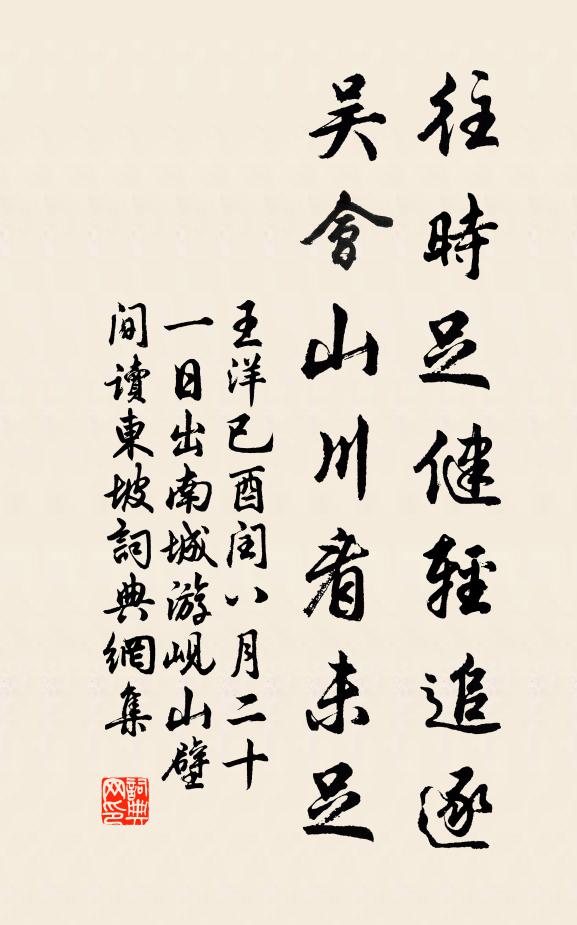 往時足健輕追逐
吳會山川看未足
王洋己酉閏八月二十
一日出南城游峴山壁
間讀東坡詞典網集
詞典网印